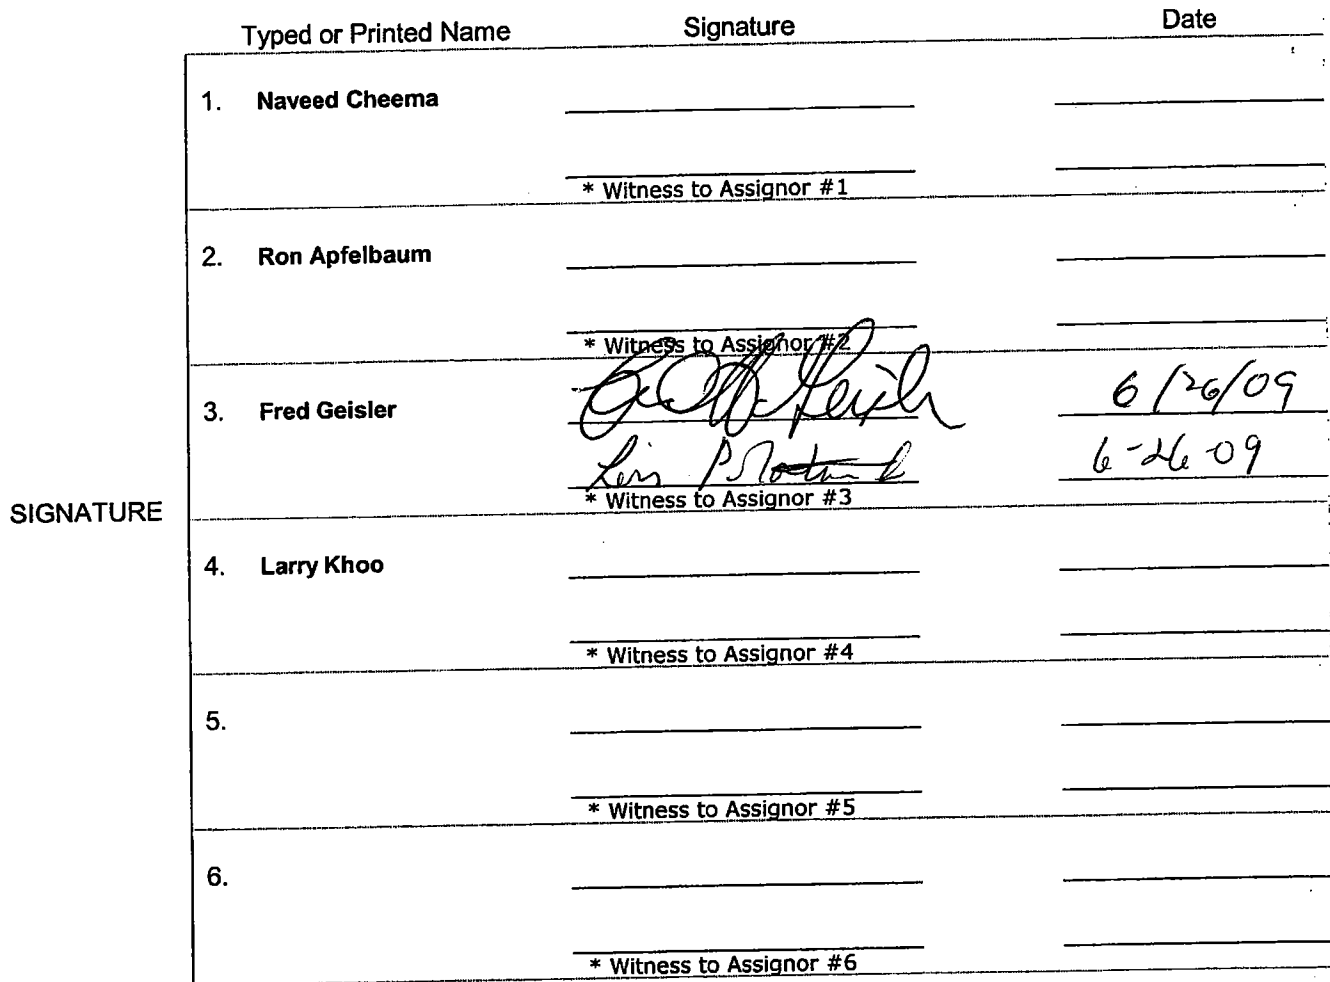 Typed or Printed Name Signature Date
1. Naveed Cheema
* Witness to Assignor #1
2. Ron Apfelbaum
* Witness to Assignor #2
3. Fred Geisler 6/26/09
6-26-09
* Witness to Assignor #3
SIGNATURE
4. Larry Khoo
* Witness to Assignor #4
5.
* Witness to Assignor #5
6.
* Witness to Assignor #6